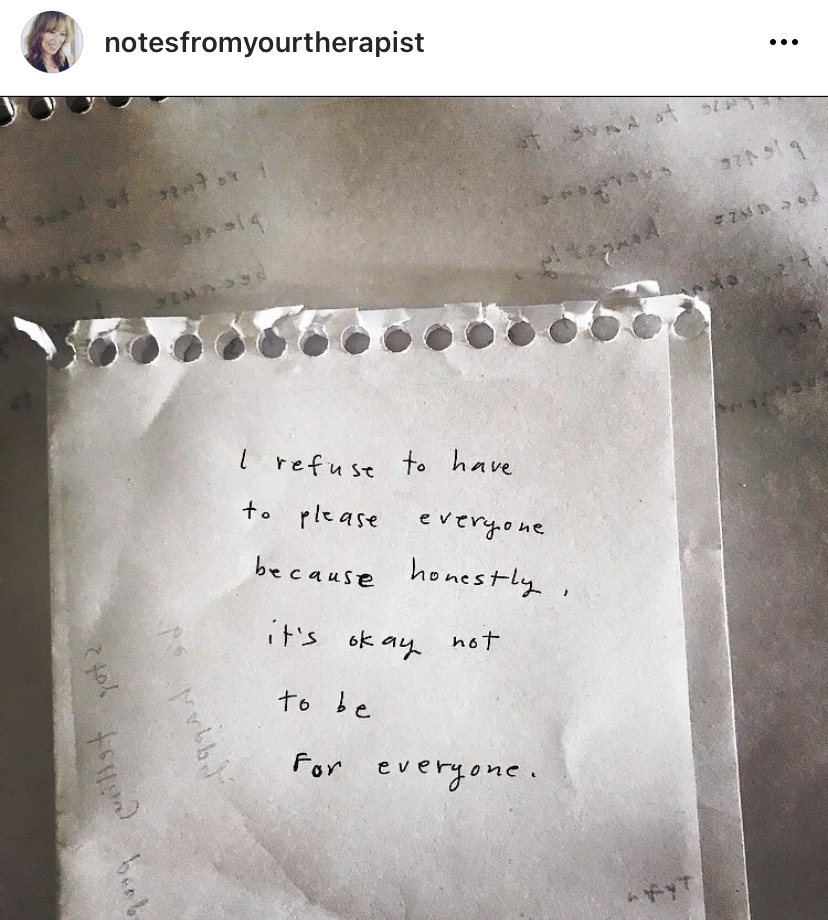 notesfromyourtherapist
I refuse to have
to please everyone
because honestly,
it's okay not
to be
For everyone.